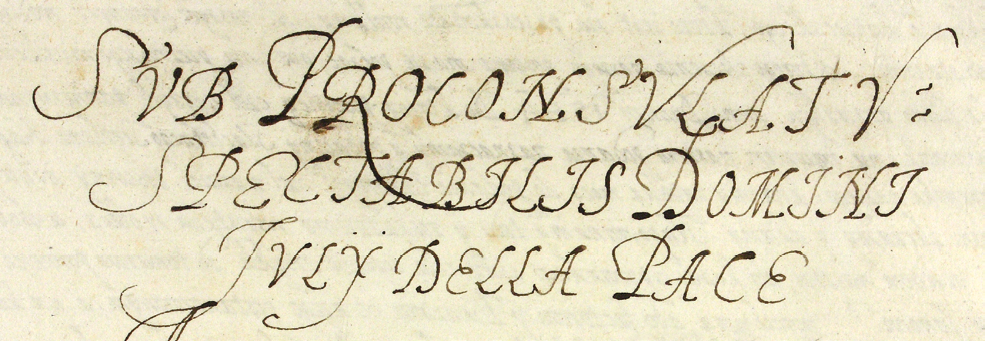 SVB PROCONSVLATV
SPECTABILIS DOMINI
JVLY DELLA PACE